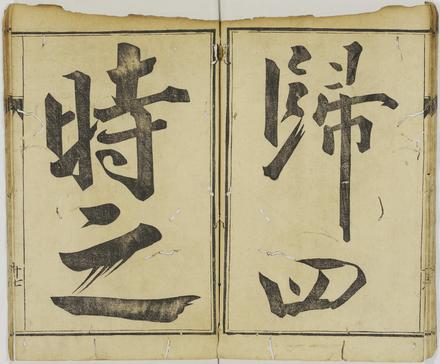 歸四
時之
廿七